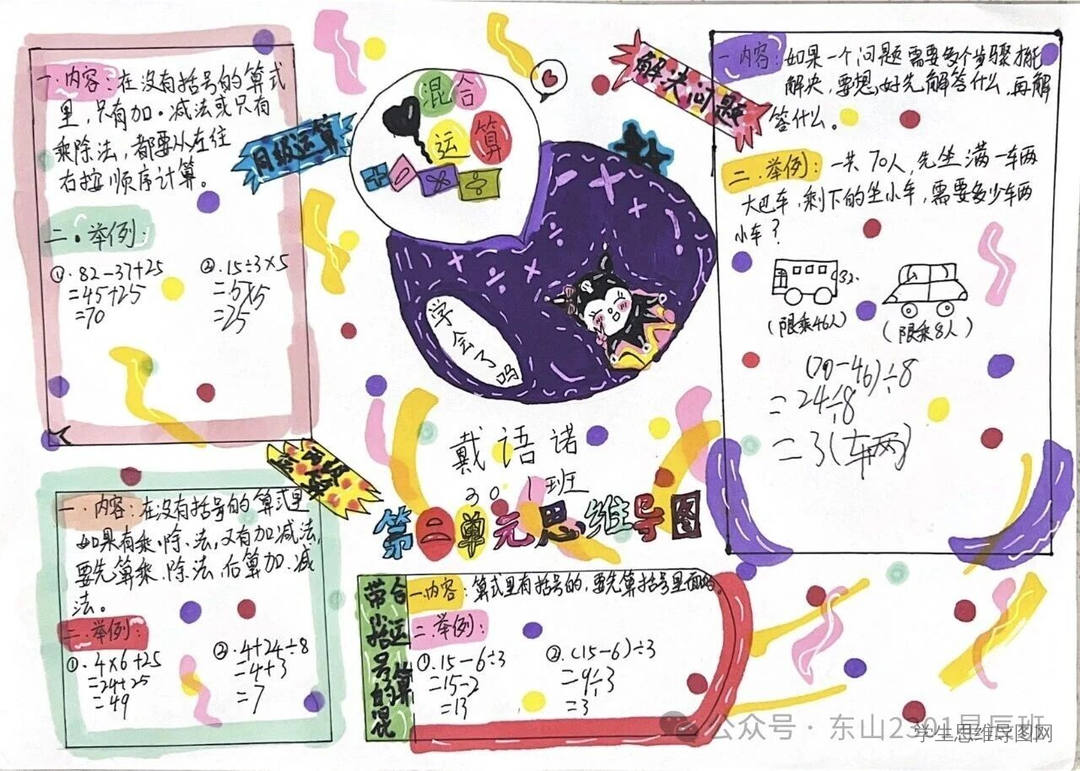 混合
运算
+ - × ÷
学会了吗
戴语诺
301班
第二单元思维导图
同级运算
一.内容:在没有括号的算式
里,只有加.减法或只有
乘除法,都要从左往
右按顺序计算。
二.举例:
①.82-37+25
=45+25
=70
②.15÷3×5
=5×5
=25
一.内容:在没有括号的算式里
如果有乘.除.法,又有加减法,
要先算乘.除.法,后算加.减
法。
二.举例:
①.4×6+25
=24+25
=49
②.4+24÷8
=4+3
=7
带小括号的混
合运算
一.内容:算式里有括号的,要先算括号里面的。
二.举例:
①.15-6÷3
=15-2
=13
②.(15-6)÷3
=9÷3
=3
解决问题
一.内容:如果一个问题需要多个步骤才能
解决,要想好先解答什么,再解
答什么。
二.举例:一共70人,先坐满一车两
大巴车,剩下的坐小车,需要多少车两
小车?
(限乘46人)
(限乘8人)
(70-46)÷8
=24÷8
=3(车两)
公众号·东山2301星辰班
学生思维导图网